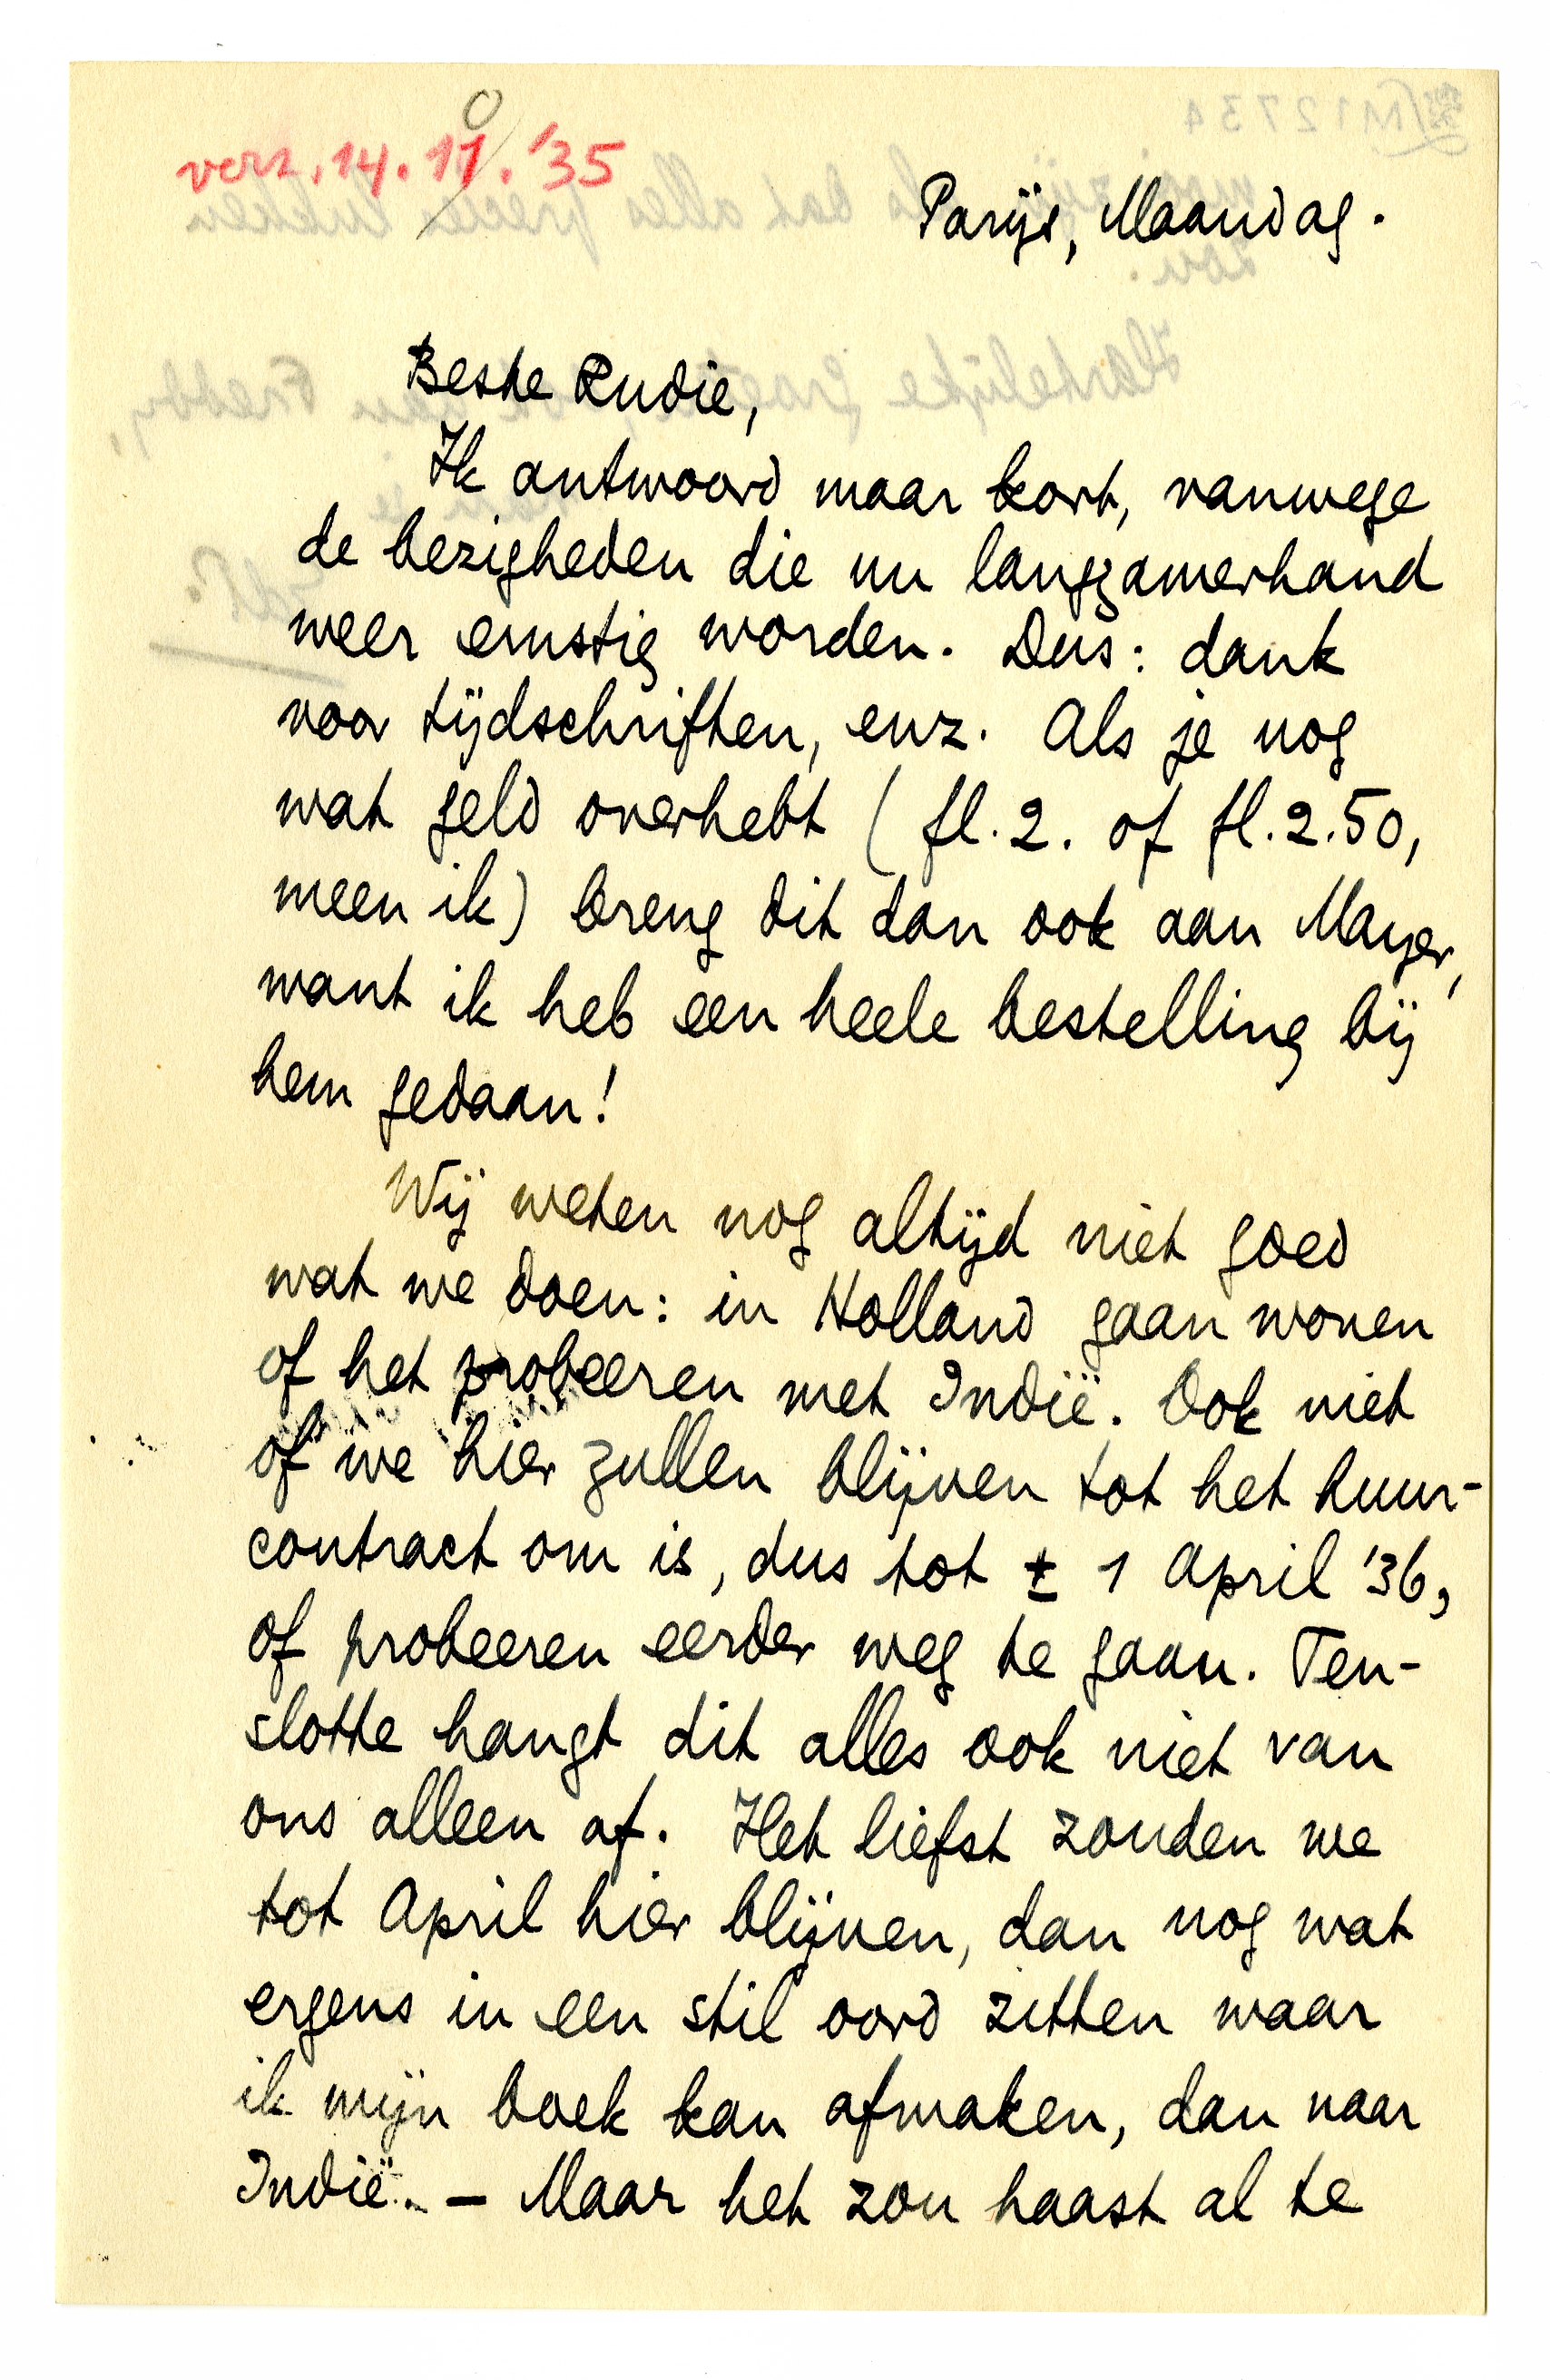 verz. 14.10.'35
Parijs, Maandag.
Beste Rudie,
Ik antwoord maar kort, vanwege
de bezigheden die nu langzamerhand
weer ernstig worden. Dus: dank
voor tijdschriften, enz. Als je nog
wat geld overhebt (fl. 2. of fl. 2.50,
meen ik) breng dit dan ook aan Mayer,
want ik heb een heele bestelling bij
hem gedaan!
Wij weten nog altijd niet goed
wat we doen: in Holland gaan wonen
of het probeeren met Indië. Ook niet
of we hier zullen blijven tot het huur-
contract om is, dus tot ± 1 April '36,
of probeeren eerder weg te gaan. Ten-
slotte hangt dit alles ook niet van
ons alleen af. Het liefst zouden we
tot April hier blijven, dan nog wat
ergens in een stil oord zitten waar
ik mijn boek kan afmaken, dan naar
Indië. – Maar het zou haast al te